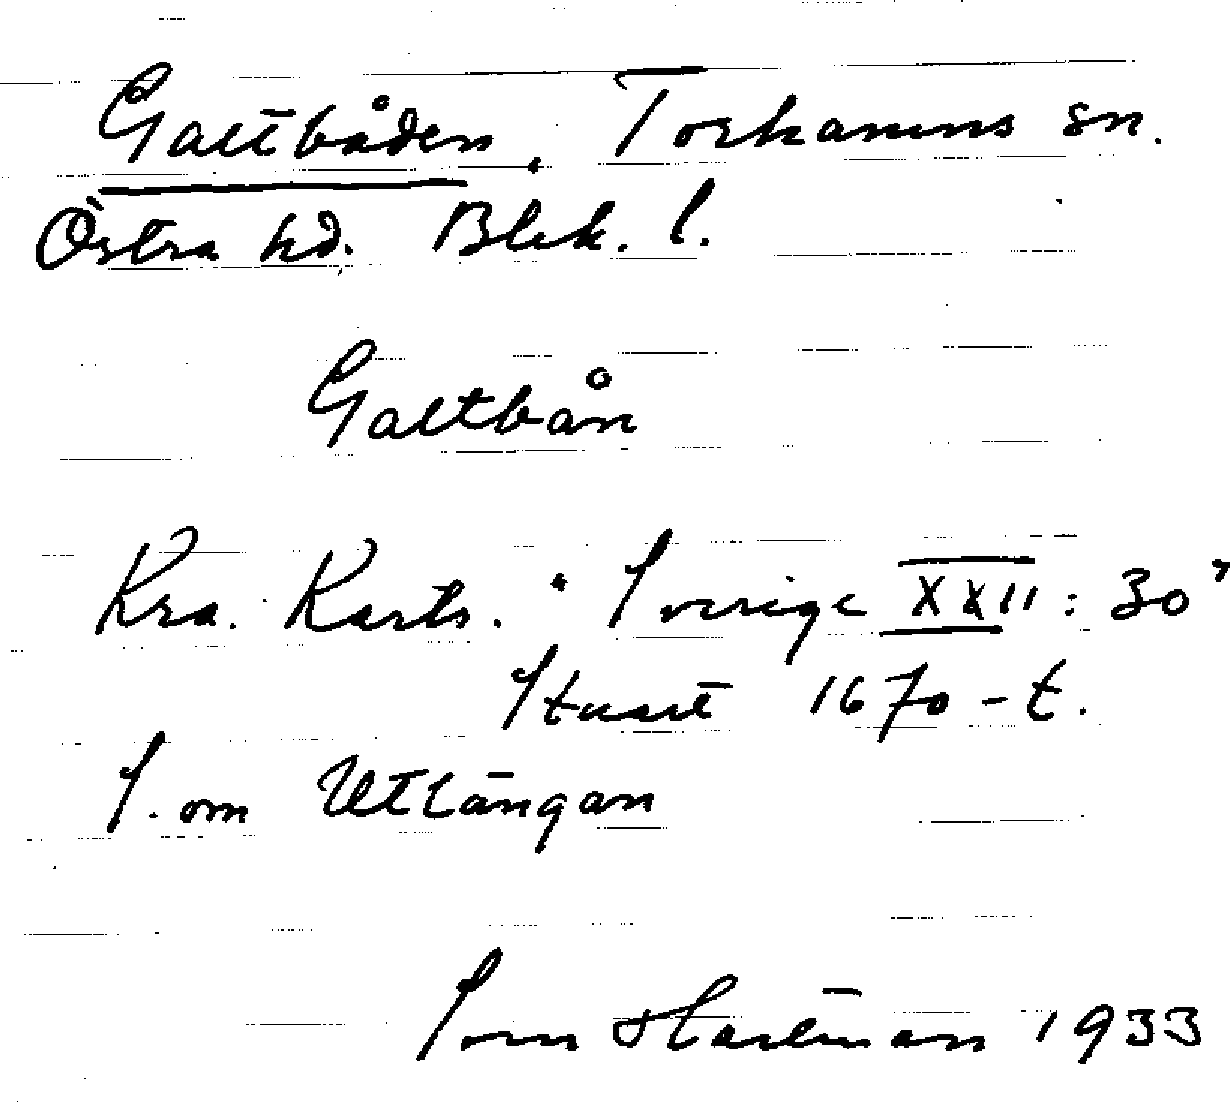 Galtbåden. Torhamns sn.
Östra hd. Blek. l.
Galtbån
Kra. Karts. "Sverige XXII: 30"
Stuart 1670-t.
S. om Utlängan
Sven Hartman 1933